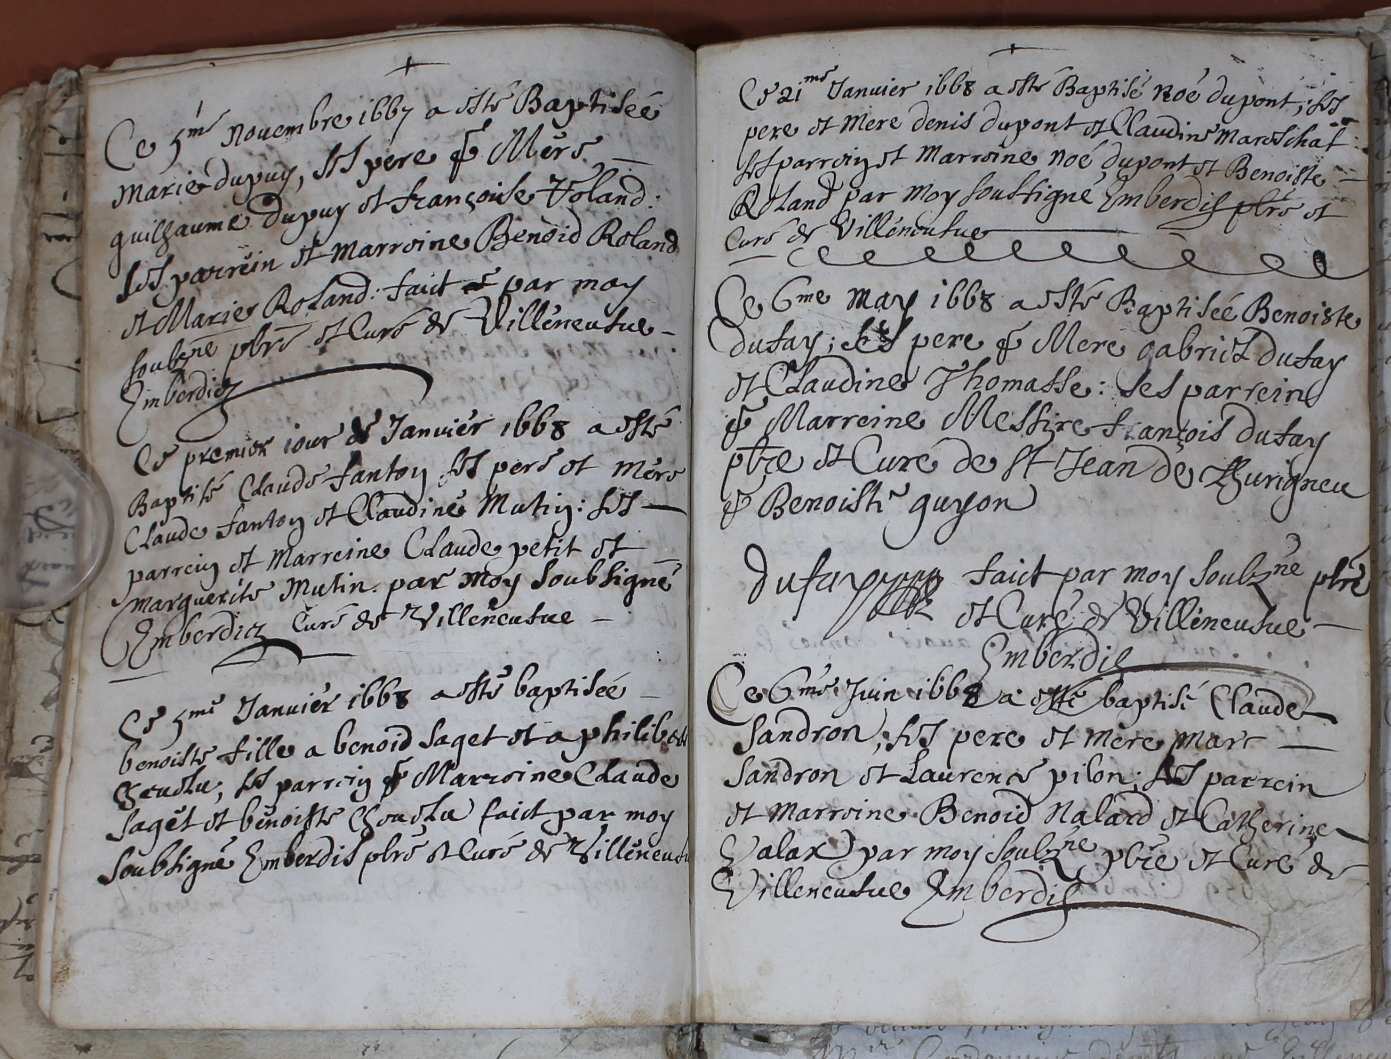 Ce 5me Novembre 1667 a esté Baptiseé
Marie dupuy, ses pere & Mere
guilhaume dupuy et françoise Roland:
ses parrein et marreine Benoid Roland
et Marie Roland: faict par moy
soubzne pbre et Curé de Villeneufue
Emberdis
Ce premier iour de Janvier 1668 a esté
Baptisé Claude fantoy ses pere et mere
Claude fantoy et Claudine Mutin: ses
parrein et Marreine Claude petit et
marguerite Mutin. par moy soubsigné
Emberdis Curé de Villeneufue
Ce 5me Janvier 1668 a esté baptiseé
benoiste fille a benoid saget et a philiberte
ses parrein & Marreine Claude
saget et benoiste faict par moy
soubsigné Emberdis pbre et Curé de Villeneufue
Ce 21me Janvier 1668 a esté Baptisé Noé dupont, ses
pere et Mere denis dupont et Claudine Mareschal
ses parrein et Marreine Noé dupont et Benoiste
Roland par moy soussigné Emberdis pbre et
Curé de Villeneufue
Ce 6me May 1668 a esté Baptiseé Benoiste
dufay; ses pere & Mere gabriel dufay
et Claudine Thomasse: ses parrein
& Marreine Messire françois dufay
pbre et Cure de St Jean de Thurigneu
& Benoiste guyon
dufay faict par moy soubzne pbre
et Curé de Villeneufue
Emberdis
Ce 6me Juin 1668 a esté baptisé Claude
Sandron, ses pere et mere Marc
Sandron et Laurence pilon; ses parrein
et marreine Benoid Nalard et Catherine
Valax par moy soubzne pbre et Cure de
Villeneufue Emberdis